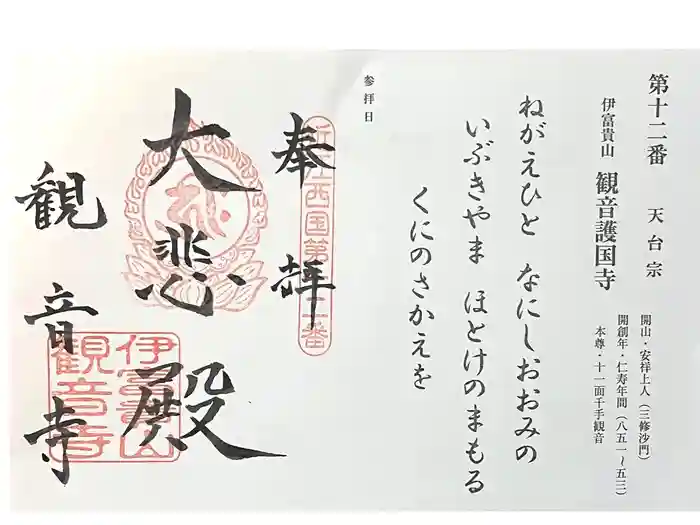 第十二番 天台宗
伊富貴山 観音護国寺
開山・安祥上人(三修沙門)
開創年・仁寿年間(八五一〜五三)
本尊・十一面千手観音
ねがえひと なにしおおみの
いぶきやま ほとけのまもる
くにのさかえを
参拝日
奉拝
近江西国第十二番
大悲殿
観音寺
伊富貴山
観音寺